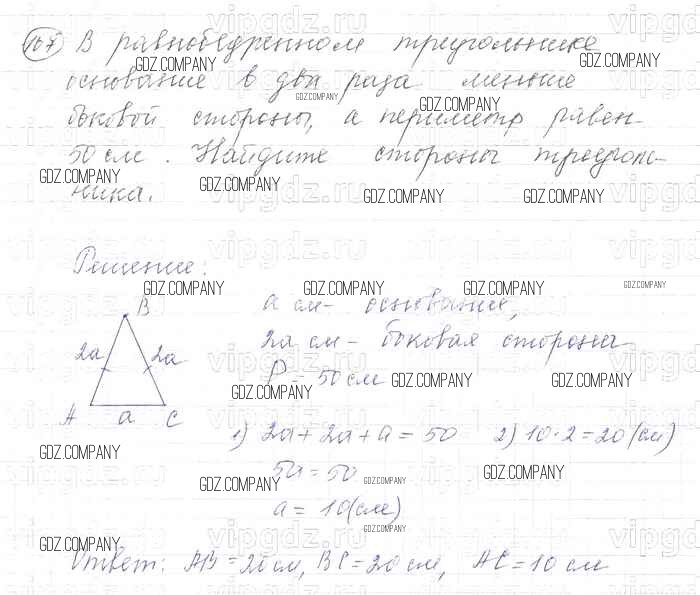 167 В равнобедренном треугольнике
основание в два раза меньше
боковой стороны, а периметр равен
50 см. Найдите стороны треуголь-
ника.
Решение:
B
2a 2a
A a C
a см - основание,
2a см - боковая сторона
P = 50 см
1) 2a + 2a + a = 50
5a = 50
a = 10 (см)
2) 10 · 2 = 20 (см)
Ответ: AB = 20 см, BC = 20 см, AC = 10 см
GDZ.COMPANY
vipgdz.ru